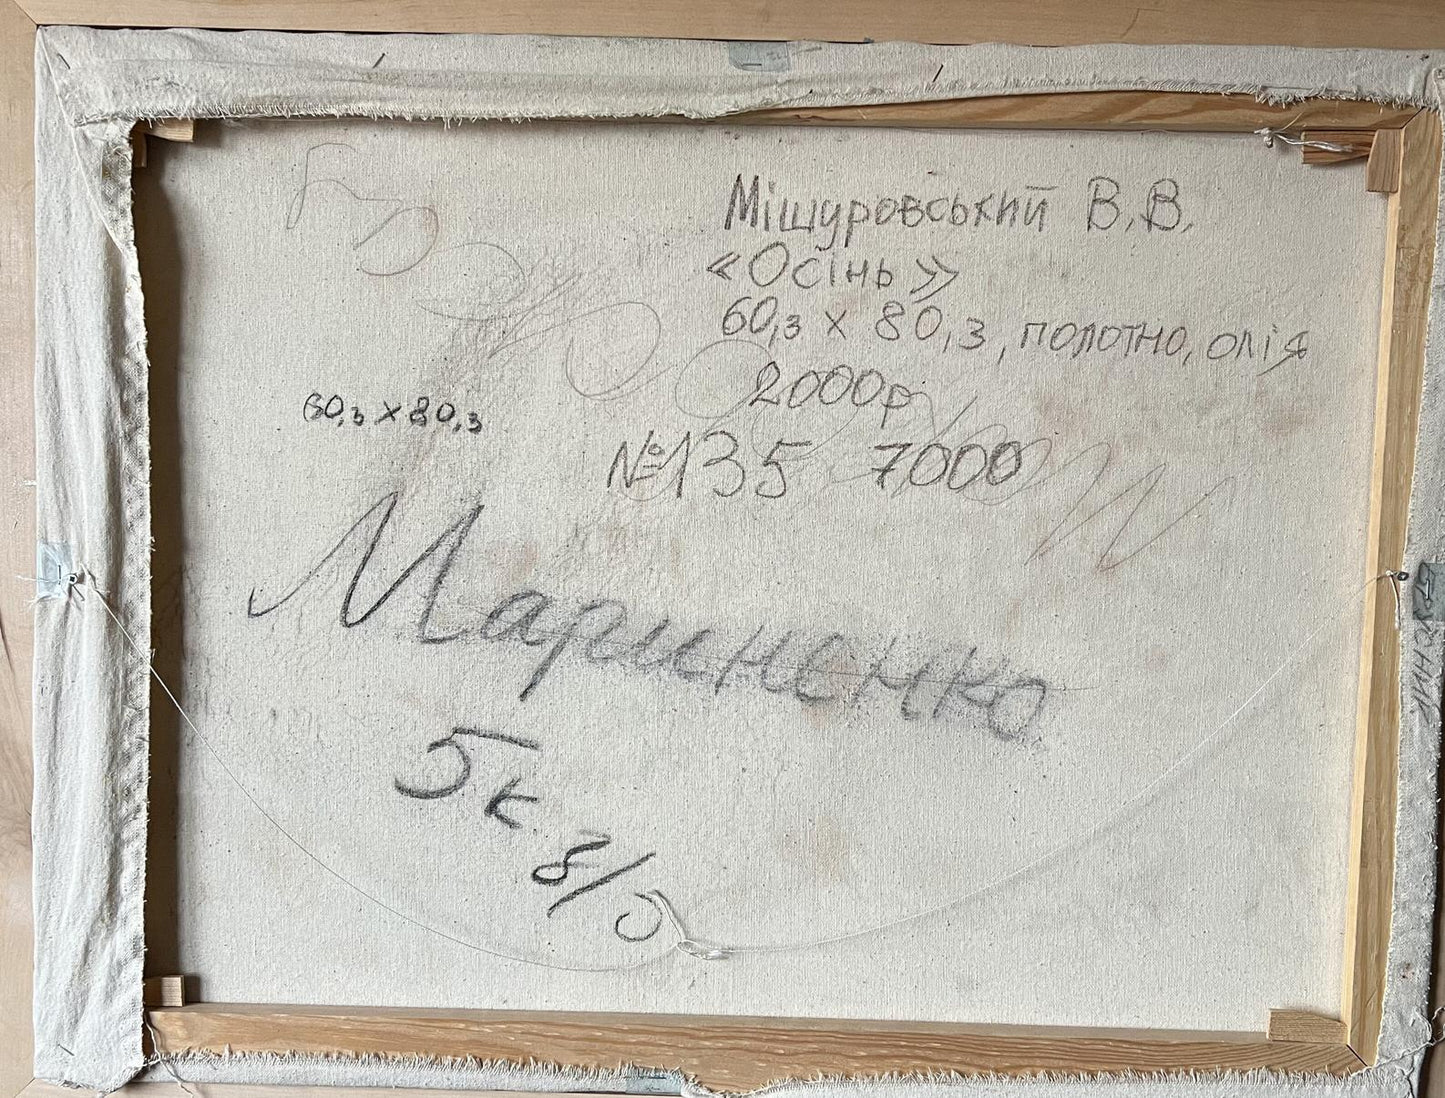 Мішуровський В.В.
«Осінь»
60,3 x 80,3, полотно, олія
2000р
60,3 x 80,3
№135 7000
Мариненко
5к